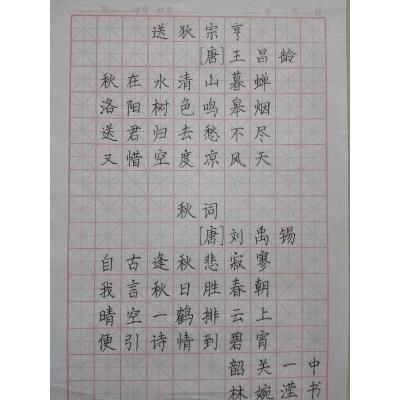 班 学号 姓名 年 月 日
送狄宗亨
[唐]王昌龄
秋在水清山暮蝉
洛阳树色鸣皋烟
送君归去愁不尽
又惜空度凉风天
秋词
[唐]刘禹锡
自古逢秋悲寂寥
我言秋日胜春朝
晴空一鹤排云上
便引诗情到碧宵
韶关一中
林婉滢书